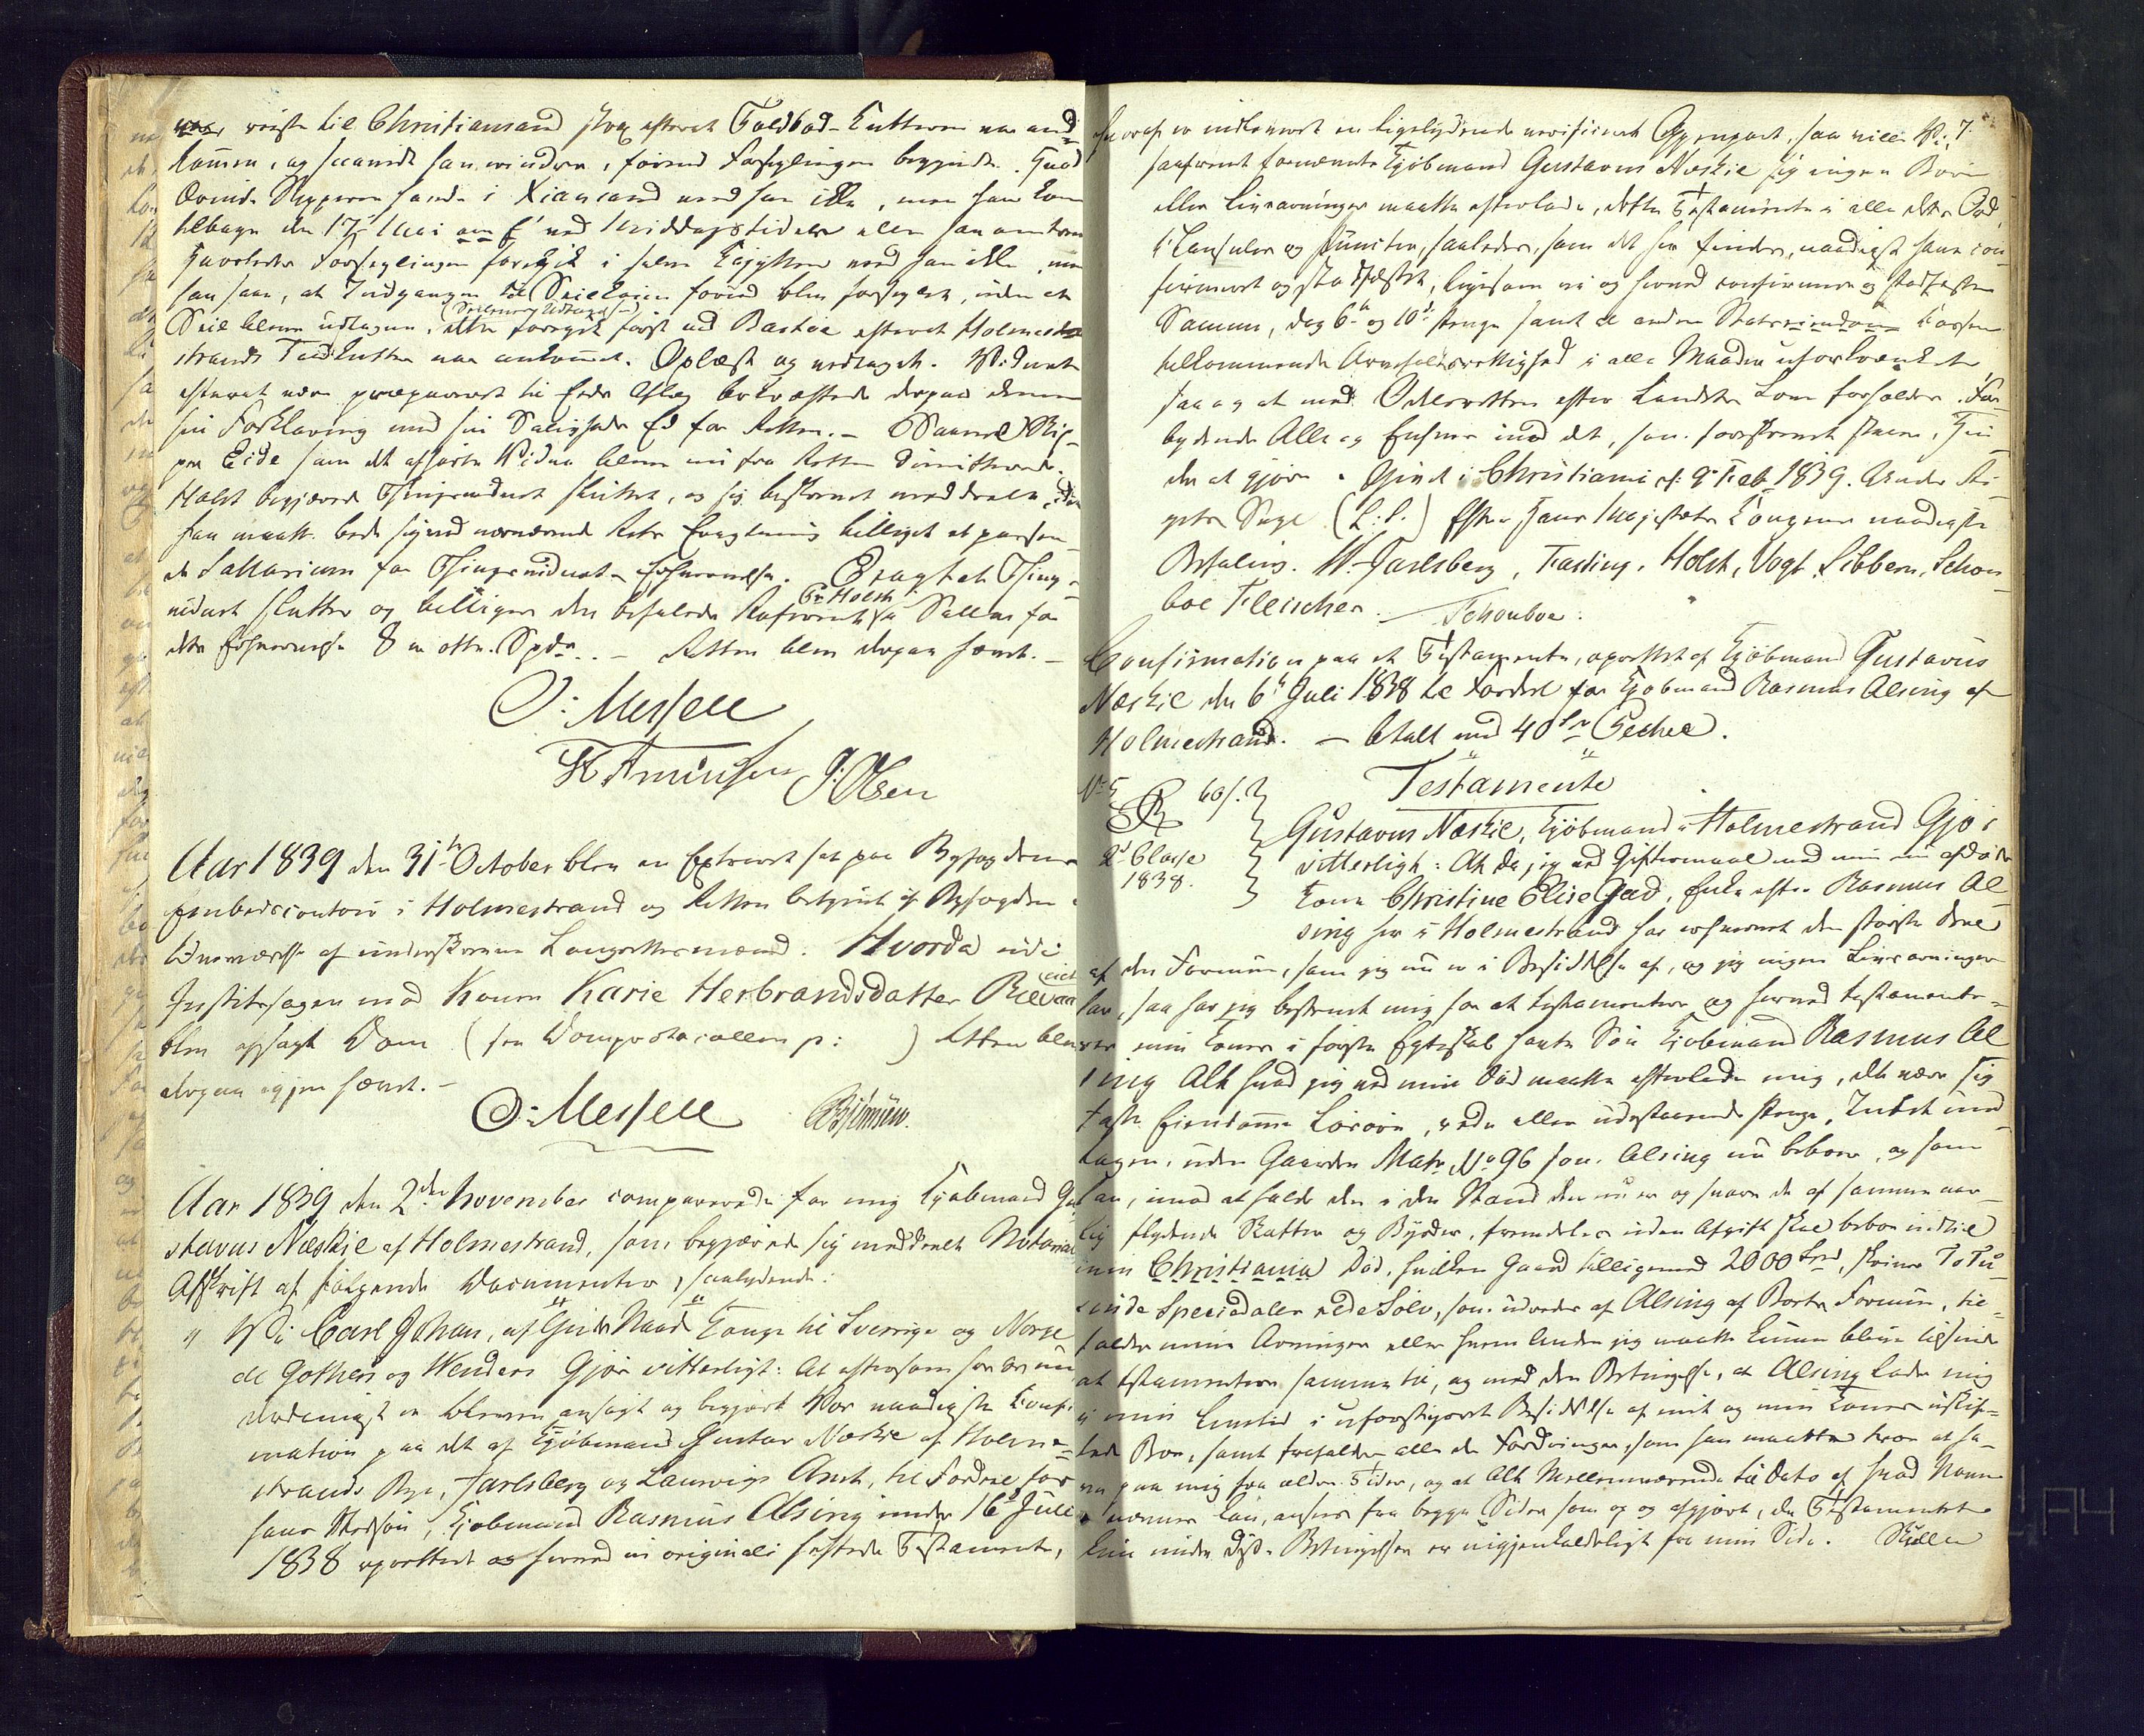 reiste til Christiansand strax efterat Toldbod-Kutteren var an-
kommen, og saavidt han erindrer, førend Forseglingen begyndte. Hvad
Skipperen havde i Xiansand veed han ikke, men han kom
tilbage den 17de Mai ved Middagstider eller saa omtrent
Hvorledes Forseglingen foregik i selve Kahytten veed han ikke, men
han saae, at Indgangen til Seilkøien forud blev forseglet, uden at
Seil bleve udtagne, (Seilenes Udtagelse) foregik først ved Bastøe efterat Holme-
strands Toldkutter var ankommet. Oplæst og vedtaget. Vidnet
efterat være præpareret til Eeds Aflæg bekræftede derpaa denne
sin Forklaring med sin Saligheds Ed for Retten. –
Eide som det afhørte Vidne bleve nu fra Retten dimitteret.
Holst begjærede Thingsvidnet sluttet, og sig beskrevet meddeelt,
han maatte bede sig ved nærværende Rets Eragtning billiget et passen-
de Sallarium for Thingsvidnets Erhvervelse. Eragtet Things-
vidnet sluttes og billiges den befalede Referent Hr. Holst i Sallar for
dets Erhvervelse 8 er otte Spdr. – Retten blev derpaa hævet. –
O: Messell
H Amundsen J: Olsen
Aar 1839 den 31te October blev en Extraret sat paa Byfogdens
Embedscontoir i Holmestrand og Retten betjent af Byfogden i
Overværelse af underskrevne Laugrettesmænd. Hvorda udi
Justitssagen mod Konen Karie Herbrandsdatter
blev afsagt Dom (see Domprotocollen p: ) Retten blev
derpaa igjen hævet. –
O: Messell
Aar 1839 den 2den November comparerede for mig Kjøbmand Gu-
stavus Næskie af Holmestrand, som begjærede sig meddeelt Notarial
Afskrift af følgende Documenter, saalydende:
" Vi Carl Johan, af Guds Naade Konge til Sverrige og Norge
de Gothers og Wenders Gjør vitterligt: At eftersom hos Os er nu
underdanigst er bleven ansøgt og begjært Vor naadigste Confir-
mation paa det af Kjøbmand Gustav Næskie af Holme-
strands Bye, Jarlsberg og Laurvigs Amt, til Fordeel for
hans Stedsøn, Kjøbmand Rasmus Alsing under 16de Juli
1838 oprettede og herved in originali heftede Testamente,
hvoraf er indleveret en ligelydende verificeret Gjenpart, saa ville Vi, 7
saafremt fornævnte Kjøbmand Gustavus Næskie sig ingen Børn
eller Livsarvinger maatte efterlade, dette Testamente i alle dets Ord
Clausuler og Puncter, saaledes, som det her findes, naadigst have con-
firmeret og stadfæstet, ligesom vi og herved confirmere og stadfæste
Samme, dog 6te og 10de Penge samt al anden Statscassen
tilkommende Arvefaldsrettighed i alle Maader uforkrænket
saa og at med Odelsretten efter Landets Love forholdes. For-
bydende Alle og Enhver imod det, som foreskrevet staaer, Hin-
der at gjøre. Givet i Christiania d: 9 Feb 1839. Under Ri-
gets Segl (L: S.) Efter Hans Majestæts Kongens naadigste
Befaling. W. Jarlsberg, Fasting, Holst, Vogt, Sibbern, Schou-
boe Fleischer. – Schouboe.
Confirmation paa et Testamente, oprettet af Kjøbmand Gustavus
Næskie den 6te Juli 1838 til Fordeel for Kjøbmand Rasmus Alsing af
Holmestrand. – betalt med 40
No 5 60/.
2d Classe
1838.
Testamente
Gustavus Næskie, Kjøbmand i Holmestrand Gjør
vitterligt: At da jeg ved Giftermaal med min nu afdøde
Kone Christine Elise Gad, Enke efter Rasmus Al-
sing her i Holmestrand har erhvervet den største Deel
af den Formue, som jeg nu er i Besiddelse af, og jeg ingen Livsarvinger
har, saa har jeg bestemt mig for at testamentere og herved testamente-
rer min Kones i første Egteskab havte Søn Kjøbmand Rasmus Al-
sing Alt hvad jeg ved min Død maatte efterlade mig, det være sig
faste Eiendomme Løsøre, rede eller udestaaende Penge, Intet und-
tagen, uden Gaarden Matr No 96 som Alsing nu beboer, og som
han, imod at holde den i den Stand den nu er og svare de af samme aar-
lig flydende Skatter og Byrder, fremdeles uden Afgift skal beboe indtil
min Christiania Død, hvilken Gaard tilligemed 2000 Spd, skriver To Tu-
sinde Speciedaler rede Sølv, som udredes af Alsing af Boets Formue, til-
falder mine Arvinger eller hvem Anden jeg maatte kunne blive tilsinde
at testamentere samme til, og med den Betingelse, at Alsing lader mig
i min Livstid i uforstyrret Besiddelse af mit og min Kones uskif-
tede Boe, samt frafalder alle de Fordringer, som han maatte troe at ha-
ve paa mig fra ældre Tider, og at Alt Mellemværende til Dato af hvad Navn
nævnes kan, ansees fra begge Sider som op og afgjort, da Testamentet
kun under disse Betingelser er uigjenkaldeligt fra min Side. Skulle